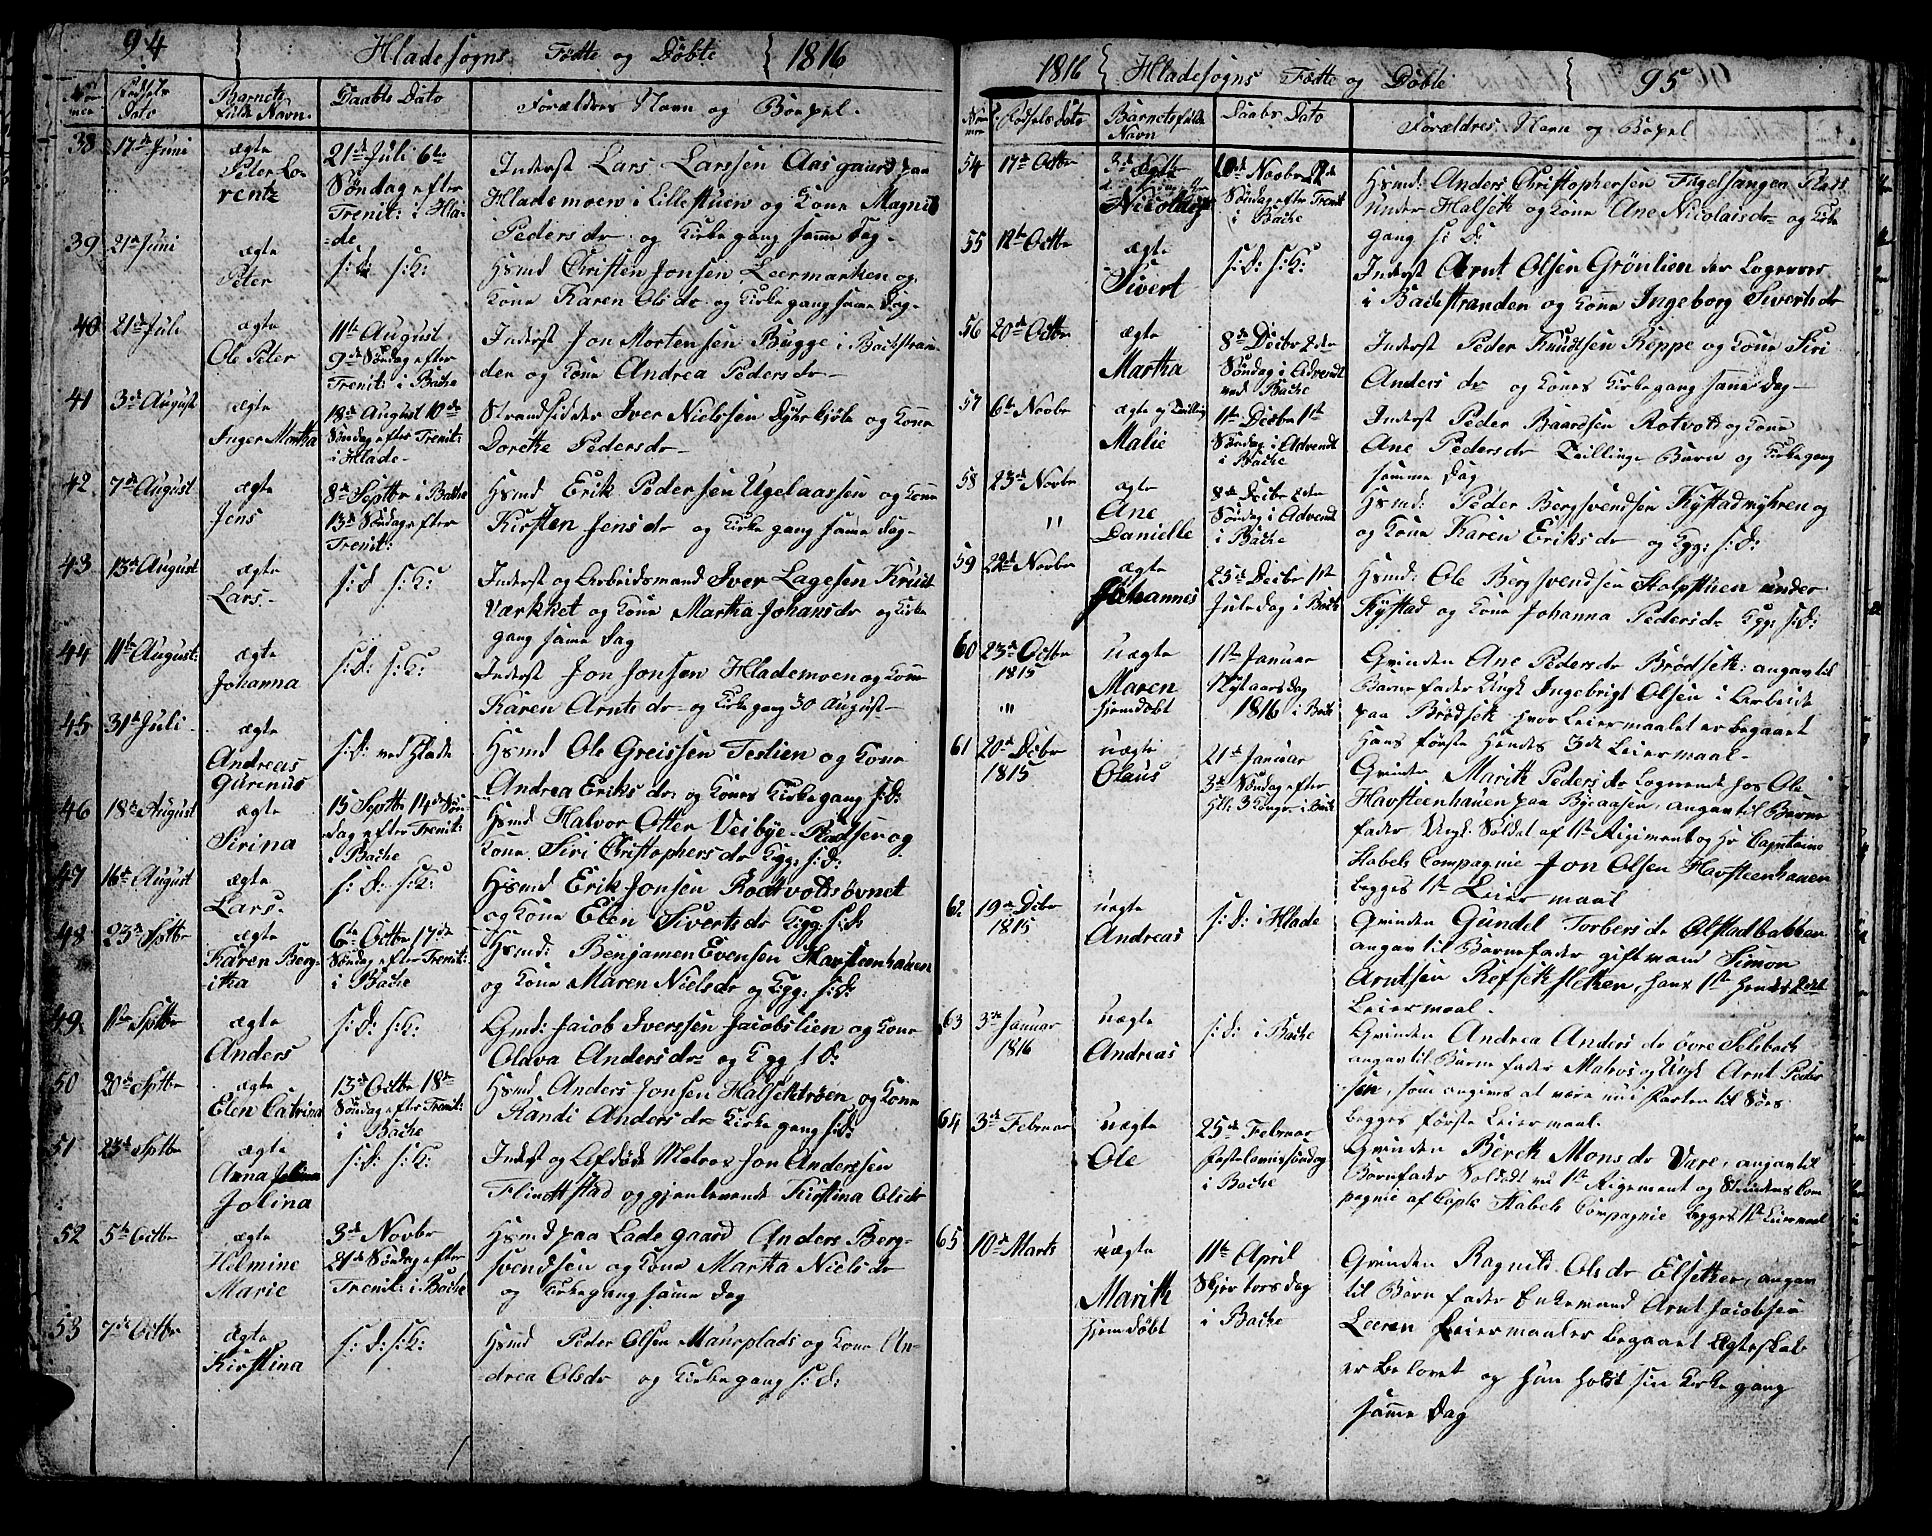 94 Hladesogns Födte og Döbte 1816
Nummer Födsels Dato Barnets fulde Navn. Daabs Dato Forældres Navn og Bopel.
38 17de Juni ægte Peter Lorentz 21de Juli 6te Söndag efter Trenit: i Hlade
Inderst Lars Larssen Aasgaard paa
Hlademoen i Lillestuen og Kone Magnil
Pedersdr og Kirkegang samme Dag-
39 21de Juni ægte Peter s: D: s: K:
Hsmd Christen Jonsen Leermarken og
Kone Karen Olsdr og Kirkegang samme Dag-
40 21de Juli ægte Ole Peter 11te August 9de Söndag efter Trenit: i Bache
Inderst Jon Mortensen Bugge i Bachstranden
og Kone Andrea Pedersdr-
41 3de August ægte Inger Martha 18de August 10de Söndag efter Trenit: i Hlade-
Strandsidder Iver Nielssen Dyhrkjöb og Kone
Dorethe Pedersdr-
42. 7de August ægte Jens 8de Septbr i Bache 13de Söndag efter Trenit:
Hsmd Erik Pedersen Ugelaassen og Kone
Kirsten Jensdr og Kirkegang samme Dag-
43 13de August ægte Lars- s: D s: K:
Inderst og Arbeidsmand Iver Lagesen Krudt
Værkket og Kone Martha Johansdr og Kirke
gang samme Dag
44 11te August: ægte Johanna s: D: s: K:
Inderst Jon Jonsen Hlademoen og Kone
Karen Arntsdr og Kirkegang 30 August-
45 31de Juli- ægte Andreas Gurenus s: D: ved Hlade
Hsmd Ole Greissen Testien og Kone
Andrea Eriksdr og Kones Kirkegang s: D:
46 18de August ægte Sirina 15 Septbr 14de Söndag efter Trenit: i Bache
Hsmd Halvor Otter Veibye-Pladsen og
Kone Siri Christophersdr Kgg: s: D:
47 16de August ægte Lars. s: D: s: K:
Hsmd Erik Jonsen Rodtvoldsövnet
og Kone Elen Sivertsdr Kgg: s: D:
48 23de Sptbr ægte Karen Bergitha 6te Octbr 17de Söndag efter Trenit: i Bache
Hsmd: Benjamen Evensen Havsteenhauen
og Kone Maren Nielsdr og Kgg: s: D:
49. 11te Sptbr ægte Anders s: D: s: K:
Gmd: Jacob Iverssen Jacobslien og Kone
Olava Andersdr og Kgg s: D:
50 30te Sptbr ægte Elen Catrina 13de Octbr 18de Söndag efter Trenit: i Bache
Hsmd Anders Jonsen Halsethröen og Kone
Randi Andersdr Kirkegang s: D:
51 23de Sptbr ægte Anna Jolina s: D: s: K:
Inderst og Afdöde Matros Jon Anderssen
Flinottstad og gjenlevende Kirstina Olsdr
52 5te Octbr ægte Helmine Marie 3de Novbr 21de Söndag efter Trenit: i Bache
Hsmd paa Ladegaard Anders Bergsvendsen
og Kone Martha Nielsdr
og Kirkegang samme Dag
53 7de Octbr ægte Kirstina s: D: s: K:
Hsmd Peder Olsen Maurplads og Kone Andrea
Olsdr og Kirkegang s: D:
1816 Hladesogns Födte og Döbte 95
Nummer Födsels Dato Barnets fulde Navn Daabs Dato Forældres Navn og Bopel
54 17de Octbr ægte Nicolai 10de Novbr Söndag efter Trenit i Bache
Hsmd: Anders Christophersen Fugelsangen Plads
under Halseth og Kone Ane Nicolaisdr og Kirke
gang s: D:
55 12te Octbr ægte Sivert s: D: s: K:
Inderst Arnt Olsen Grönlien der Logerer
i Bachstranden og Kone Ingeborg Sivertsdr
56 20de Octbr ægte Martha 8de Decbr 2den Söndag i Advendt ved Bache
Inderst Peder Knudtsen Reppe og Kone Siri
Andersdr og Kones Kirkegang samme Dag-
57 6te Novbr ægte og Tvilling Malie 1te Decbr 1st Söndag i Advendt i Bache
Inderst Peder Baardsen Rotvold og Kone
Ane Pedersdr Tvillinge Barn og Kirkegang
samme Dag
58 23de Novbr ægte Ane Danielle 8de Decbr 2den Söndag i Advendt i Bache
Hsmd: Peder Bergsvendsen Kystadmyhren og
og Kone Karen Eriksdr og Kgg: s: D:
59 22de Novbr ægte Johannes 25de Decbr 1ste Juledag i Bache
Hsmd: Ole Bergsvendsen Stolpstuen under
Kystad og Kone Johanna Pedersdr Kgg: s: D:
60 23de Octbr 1815 uægte Maren hjemdöbt 1ste Januar Nytaarsdag 1816 i Bache
Qvinden Ane Pedersdr Brödseth: angav til
Barnefader Ungk Ingebrigt Olsen i Arbeide
paa Brödseth hvor Leiermaalet er begaaet
Hans förste Hendes 3de Leiermaal-
61 20de Decbr 1815 uægte Olaus 21de Januar 3de Söndag efter Hll: 3 Konger i Bache
Qvinde Marith Pedersdr Logerende hos Ole
Havsteenhauen paa Byeaasen, angav til Barne
fader Ungk. Soldat af 1ste Rigiment og Hr Capitaine
Habels Compagnie Jon Olsen Havsteenhauen
begges 1ste Leiermaal
62 19de Decbr 1815 uægte Andreas s: D: i Hlade
Qvinden Gundel Torbersdr Olstadbakken
angav til Barnefader gift mand Simon
Arntsen Refsethsletten, hans 1ste hendes 2det
Leiermaal.
63 3de Januar 1816 uægte Andreas s: D: i Bache
Qvinden Andrea Andersdr övre Selsbach
angav til Barnefader Matros og Ungk Arnt Peder
sen, som angives at være nu i Farten til Söes
begges förste Leiermaal.
64 3de Februar uægte Ole 25de Februar Fastelavnssöndag i Bache
Qvinden Bereth Monsdr Være, angav til
Barnfader Soldat ved 1ste Rigement og Strindens Com
pagnie af Capt: Habels Compagnie begges 1ste Leiermaal
65 10de Marts uægte Marith hjemdöbt 11te April Skjertorsdag i Bache
Qvinden Ragnild Olsdr Elsether, angav
til Barnfader Enkemand Arnt Jacobsen
Leeren Leiermaalet begaaet Ægteskab
er belovet og hun holdt sin Kirkegang
samme Dag